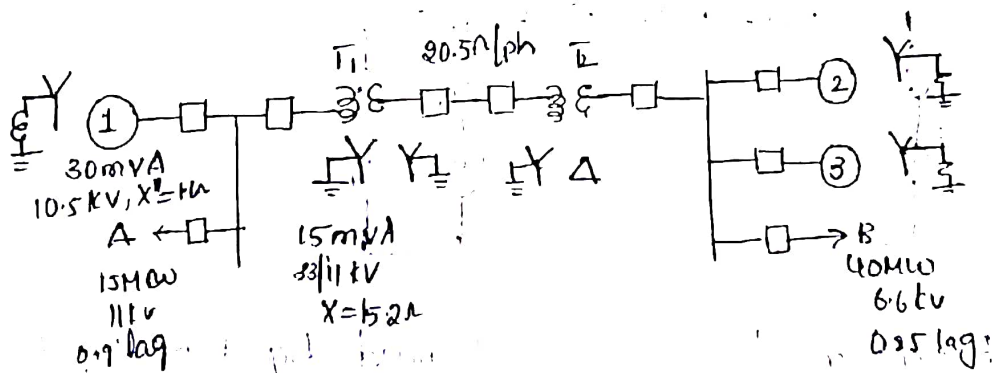 T1
20.5Ω/ph
T2
1
2
3
30mVA
10.5 KV, X"=1Ω
A
15MW
11kv
0.9 lag
15mVA
33/11 kV
X=15.2Ω
Δ
B
40MW
6.6 kv
0.85 lag